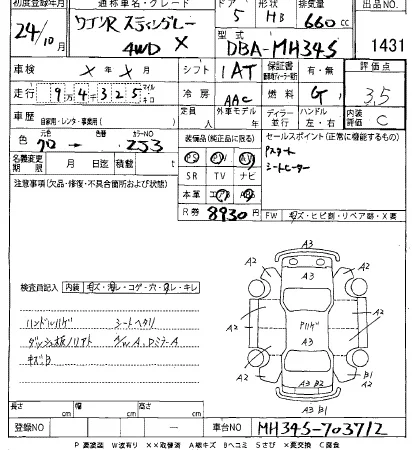 初度登録年月 通称車名・グレード ドア 形状 排気量 出品NO
24/10月 ワゴンR スティングレー 5 HB 660cc
4WD X
型式 DBA-MH34S 1431
車検 X年X月 シフト 1AT 保証書 有・無 評価点
走行 9万4千325 マイル キロ 冷房 AAC 燃料 G 3.5
定員 人 外車モデル ディーラー 並行 ハンドル 左・右 内装評価 C
車歴 自家用・レンタ・事業用( )
色 元色 クロ→ 色替 カラーNO ZJ3
装備品(純正品に限る) セールスポイント(正常に機能するもの)
PS PW ナビ Pスタート
名義変更期限 月 日迄 積載 t SR TV ナビ シートヒーター
注意事項(欠品・修復・不具合箇所および状態) 本革 エアB AB
R券 8930円 FW キズ・ヒビ割・リペア跡・X要
検査員記入 内装 キズ・汚レ・コゲ・穴・切レ・キレ
ハンドルハゲ シートヘタリ
ダッシュ板ノリアト
キズB
A3
A2 A2
A2 Pハゲ A2
A3
A2 B1
A3 B2
A3 B1
長さ cm 幅 cm 高さ cm
登録NO 車台NO MH34S-703712
P 要塗装 W 波有り XX取替済 A 線キズ Bヘコミ Sさび X要交換 C腐食